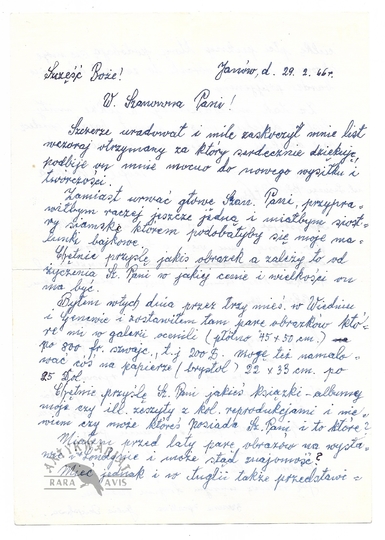 Szczęść Boże!
Janów, d. 29. 2. 66 r.
W. Szanowna Pani!
Szczerze uradował i mile zaskoczył mnie list
wczoraj otrzymany za który serdecznie dziękuję,
podbije on mnie mocno do nowego wysiłku i
twórczości.
Zamiast urwać głowę Szan. Pani, przypra-
wiłbym raczej jeszcze jedną i miałbym siost-
ry siamskie którem podobałyby się moje ma-
lunki bajkowe.
Chętnie przyślę jakiś obrazik a zależy to od
życzenia Sz. Pani w jakiej cenie i wielkości on
ma być.
Byłem w tych dniach przez trzy mieś. w Wiedniu
i Genewie i zostawiłem tam parę obrazków któ-
re mi w galerii ocenili (płótno 45 x 50 cm.)
po 800 fr. szwajc, t.j 200 $. Mogę też namalo-
wać coś na papierze (brystol) 22 x 33 cm. po
25 Dol.
Chętnie przyślę Sz. Pani jakieś książki - albumy
moje czy ill. zeszyty z kol. reprodukcjami i nie-
wiem czy może któreś posiada Sz. Pani i to które?
Miałem przed laty parę obrazów na wysta-
wie w Londynie i może stąd znajomość?
Mieć jednak i w Anglii także przedstawi-
ARTYKWARIAT
RARA AVIS